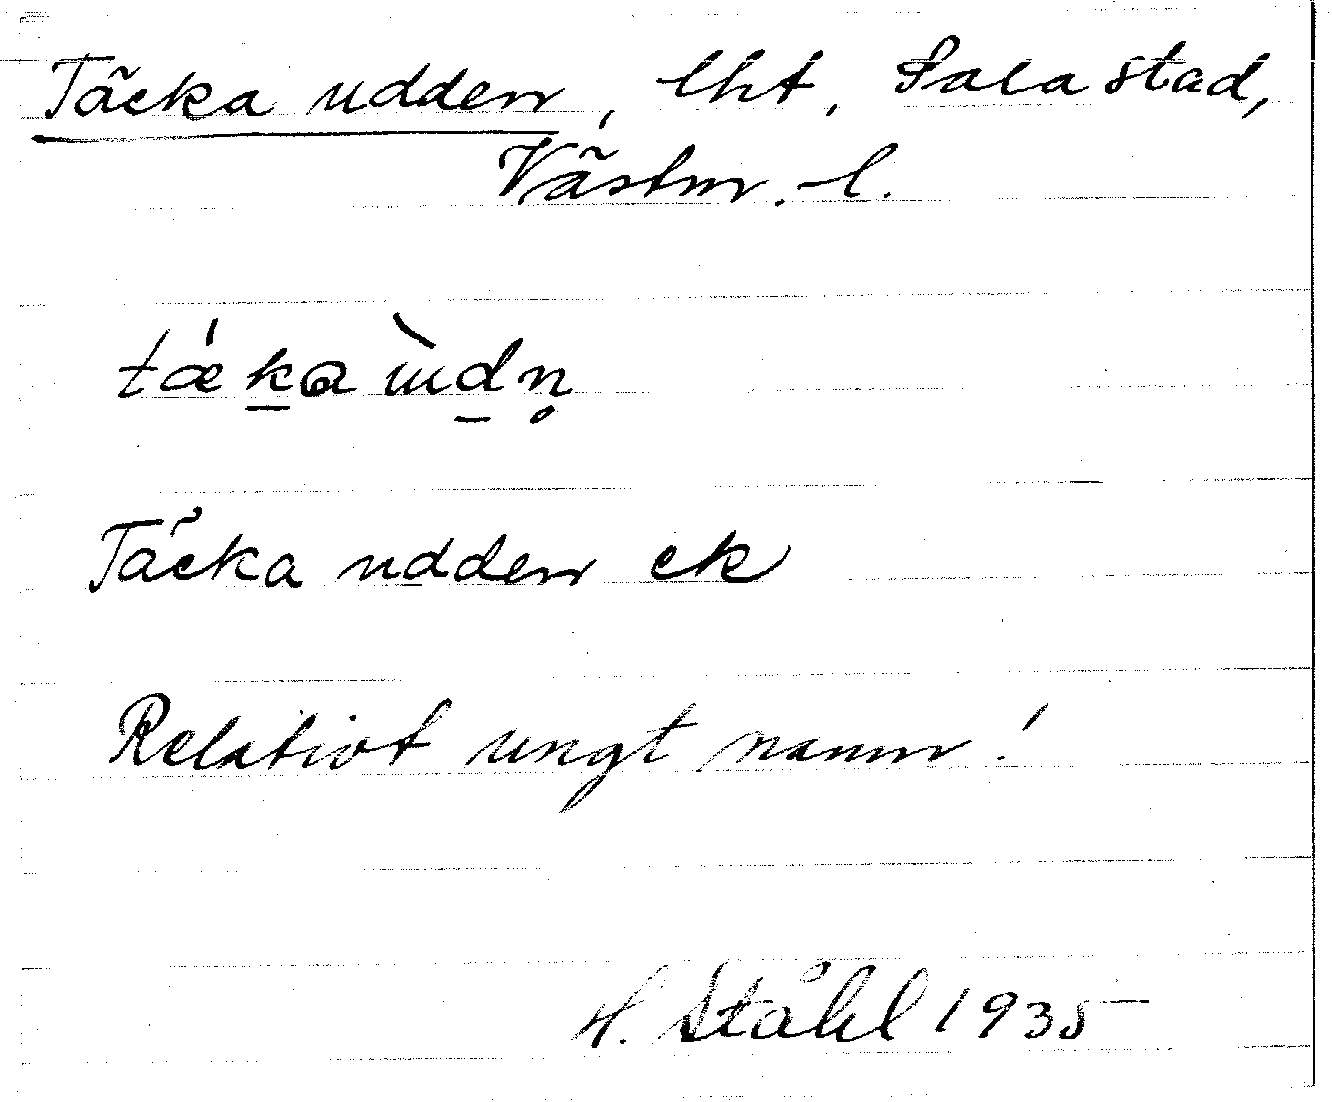 Täcka udden, lht, Sala stad,
Västm. l.
tǽka ùdn̥
Täcka udden ek
Relativt ungt namn!
H. Ståhl 1935